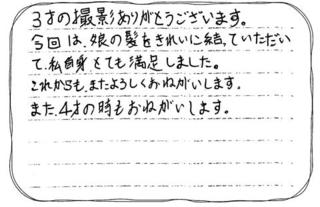 3才の撮影ありがとうございます。
今回は、娘の髪をきれいに結っていただい
て、私自身とても満足しました。
これからも、またよろしくおねがいします。
また、4才の時もおねがいします。